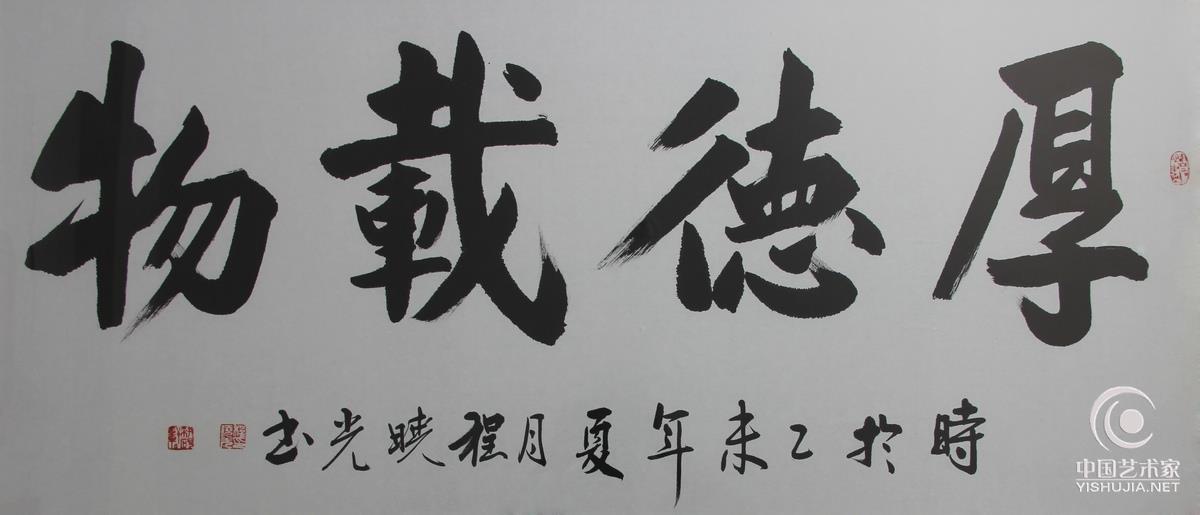 厚德載物
時於乙未年夏月程曉光书
中国艺术家
YISHUJIA.NET